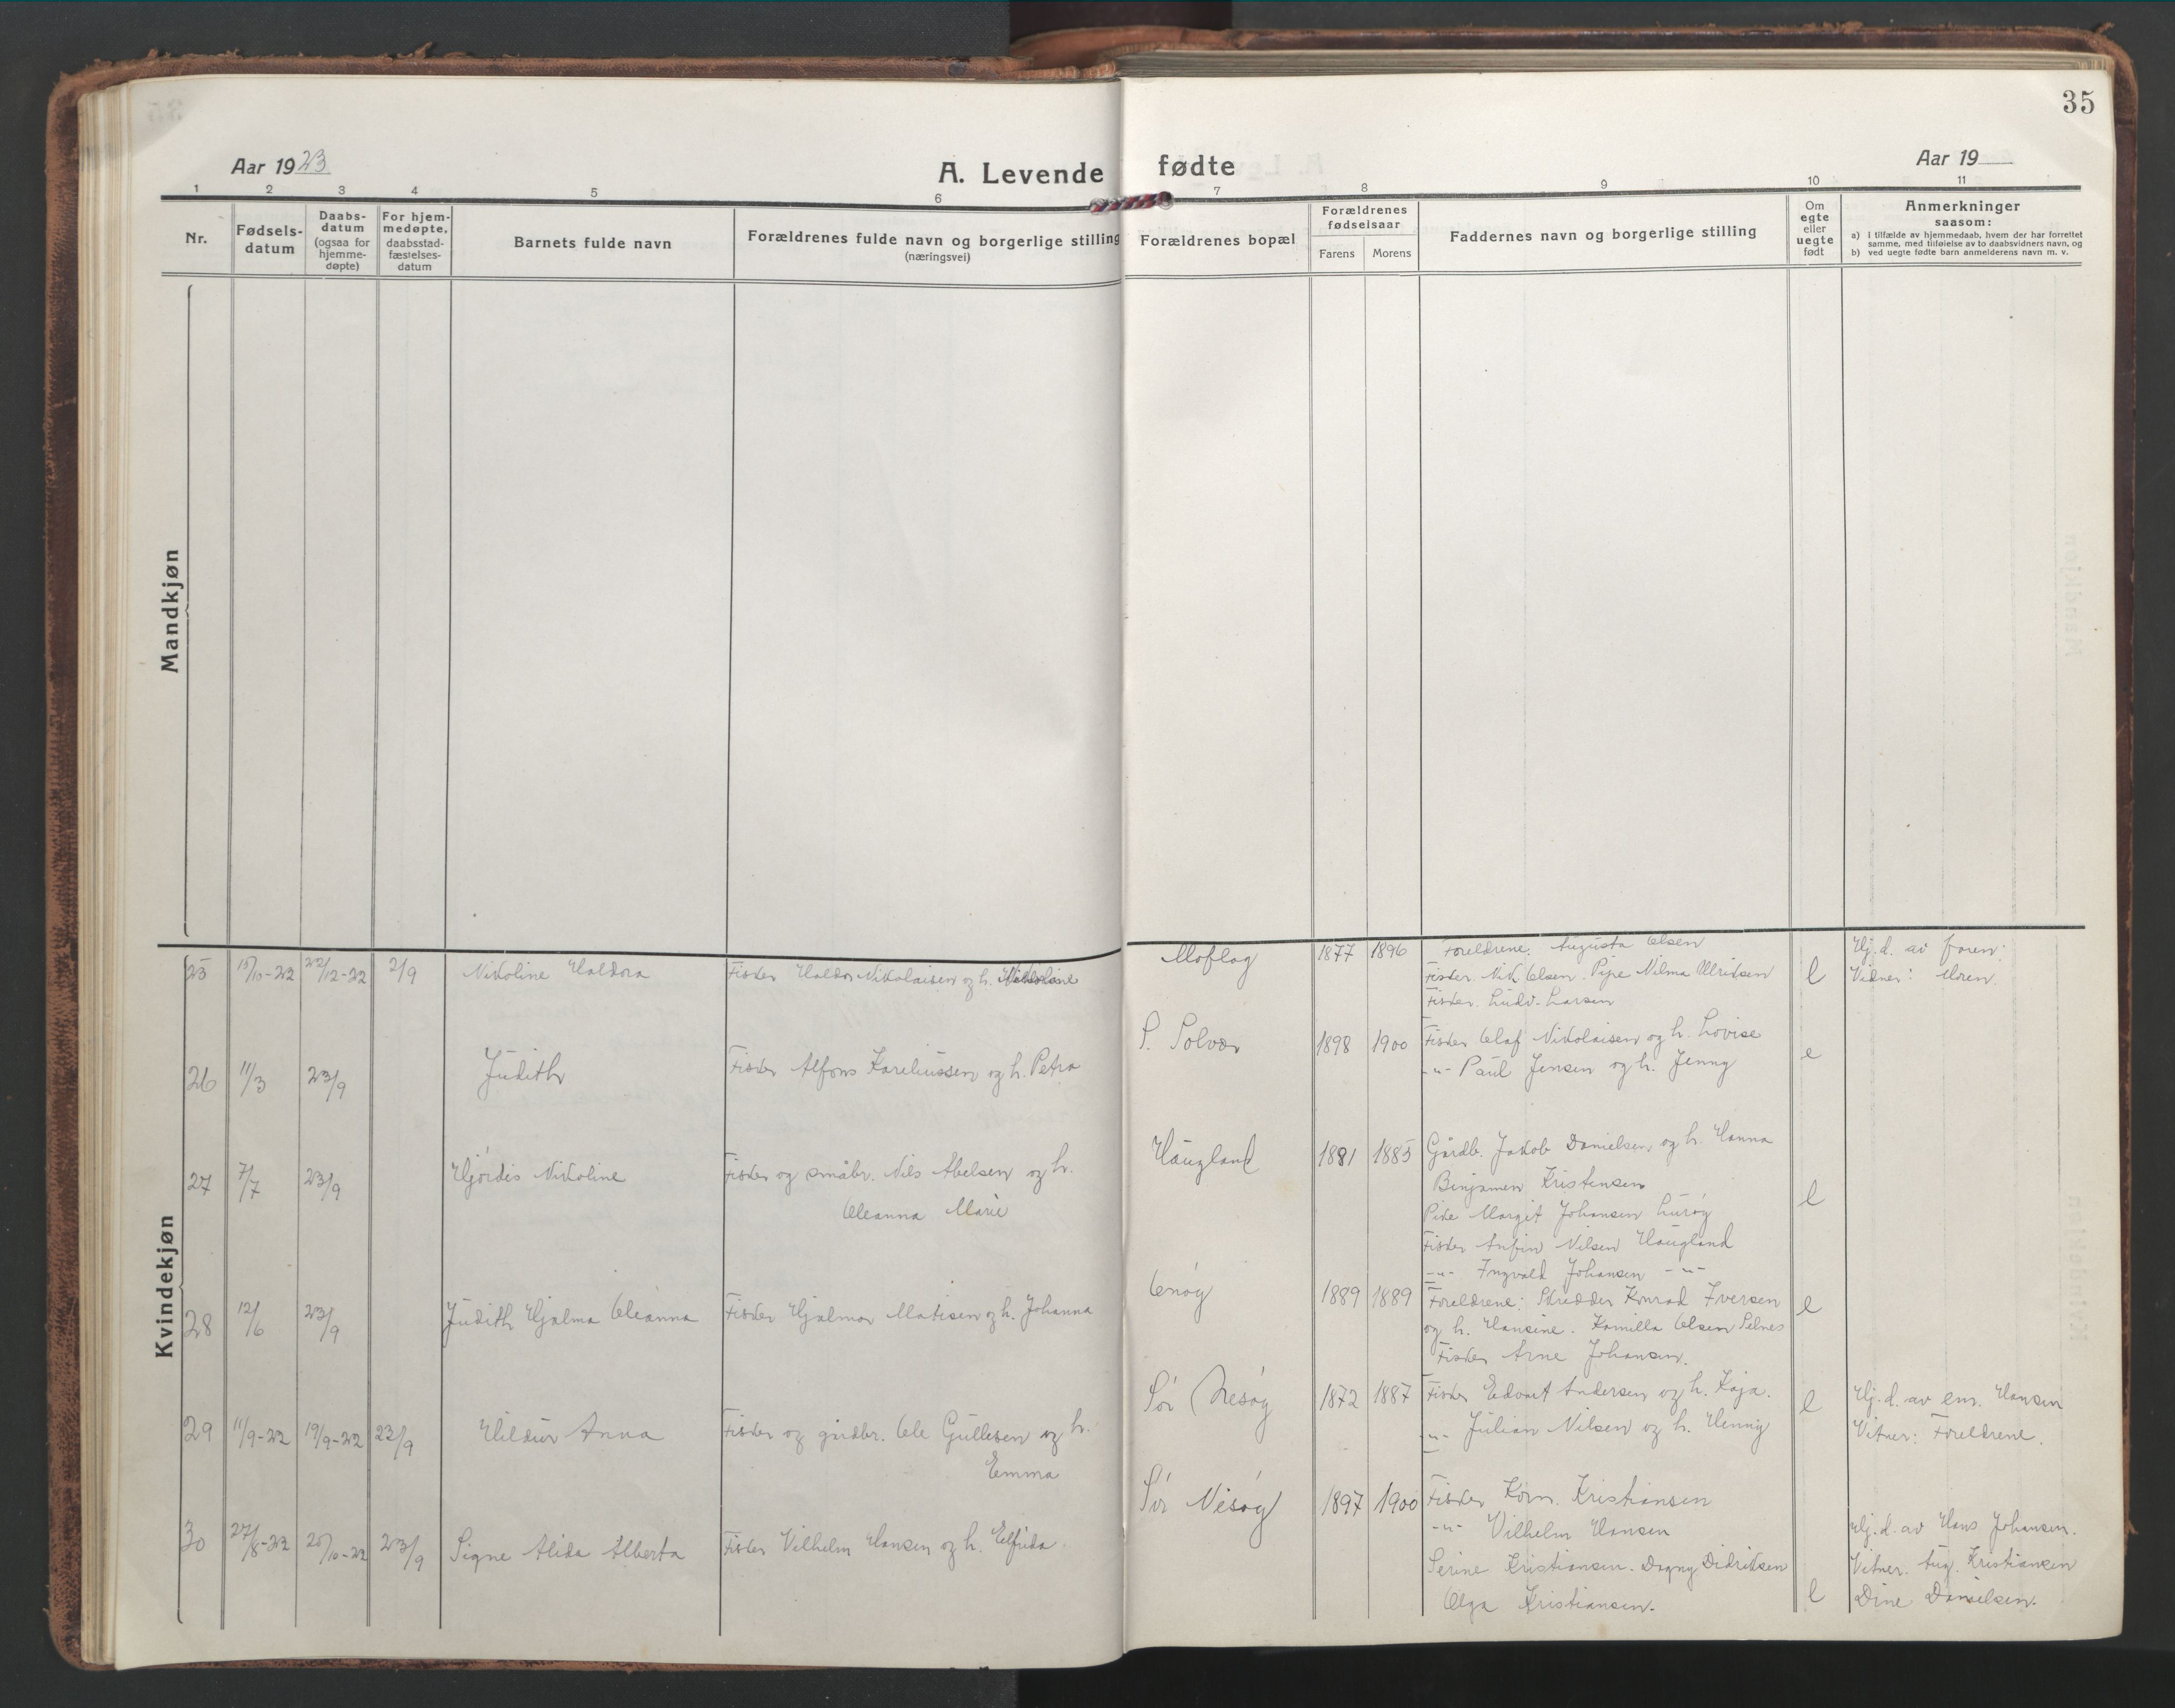 35
Aar 1923
A. Levende fødte
Aar 19
1 2 3 4 5 6 7 8 9 10 11
Nr.
Fødsels-
datum
Daabs-
datum
(ogsaa for
hjemme-
døpte)
For hjem-
medøpte,
daabsstad-
fæstelses-
datum
Barnets fulde navn
Forældrenes fulde navn og borgerlige stilling
(næringsvei)
Forældrenes bopæl
Forældrenes
fødselsaar
Farens Morens
Faddernes navn og borgerlige stilling
Om
egte
eller
uegte
født
Anmerkninger
saasom:
a) i tilfælde av hjemmedaab, hvem der har forrettet
samme, med tilføielse av to daabsvidners navn, og
b) ved uegte fødte barn anmelderens navn m. v.
Mandkjøn
Kvindekjøn
25 15/10-22 22/12-22 2/9 Nikoline Haldora Fisker Haldor Nikolaisen og h. Moflag 1877 1896 Foreldrene. Augusta Olsen
Fisker Nik. Olsen. Pike Nilma Ulriksen e
Fisker Ludv. Larsen
Hj.d. av faren.
Vidner: Moren.
26 11/3 23/9 Judith Fisker Alfons Kareliussen og h. Petra S. Solvær 1898 1900 Fisker Olaf Nikolaisen og h. Lovise
-"- Paul Jensen og h. Jenny e
27 7/7 23/9 Hjördis Nikoline Fisker og småbr. Nils Abelsen og h.
Oleanna Marie
Haugland 1881 1885 Gårdb. Jakob Danielsen og h. Hanna
Benjamen Kristensen e
Pike Margit Johansen Lurøy
Fisker Anfin Nilsen Haugland
-"- Ingvald Johansen -"-
28 12/6 23/9 Judith Hjalma Oleanna Fisker Hjalmar Matisen og h. Johanna Onøy 1889 1889 Foreldrene: Skredder Konrad Iversen e
og h. Hansine. Kamilla Olsen Selnes
Fisker Arne Johansen.
29 11/9-22 19/9-22 23/9 Hildur Anna Fisker og gårdbr. Ole Gullesen og h.
Emma
Sør Nesøy 1872 1887 Fisker Edvart Andersen og h. Kaja. e
-"- Julian Nilsen og h. Henny
Hj.d. av em. Hansen
Vitner: Foreldrene.
30 27/8-22 25/10-22 23/9 Signe Alida Alberta Fisker Vilhelm Hansen og h. Elfrida Sør Nesøy 1897 1900 Fisker Korn. Kristiansen
-"- Vilhelm Hansen
Serine Kristiansen. Dagny Didriksen
Olga Kristiansen. e
Hj.d. av Hans Johansen.
Vitner. Aug. Kristiansen
Dine Danielsen.